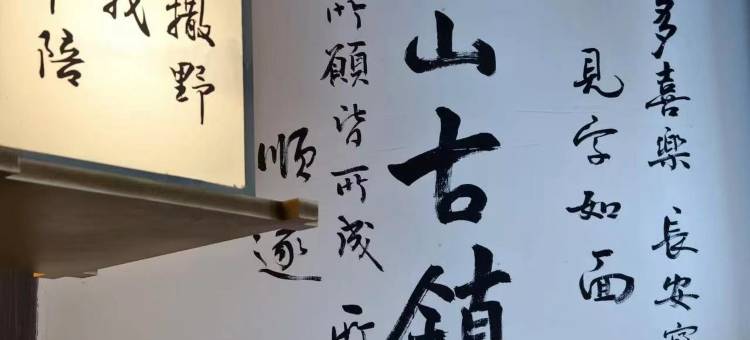 多喜樂 長安
見字如面
山古鎮
所願皆所成 所
順遂
撒野
我
陪